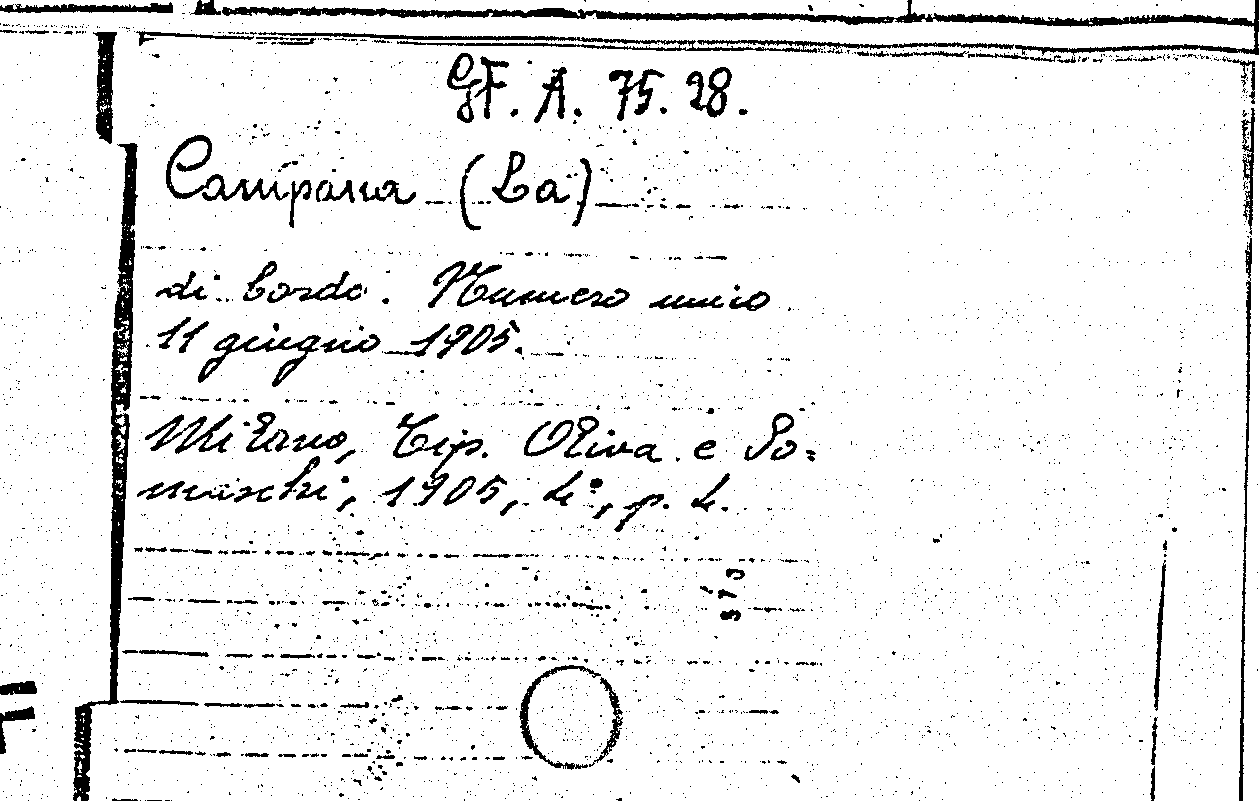 GF. A. 75. 28.
Campana (La)
di bordo. Numero unico
11 giugno 1905.
Milano, Tip. Oliva e So=
maschi, 1905, 4°, p. 4.